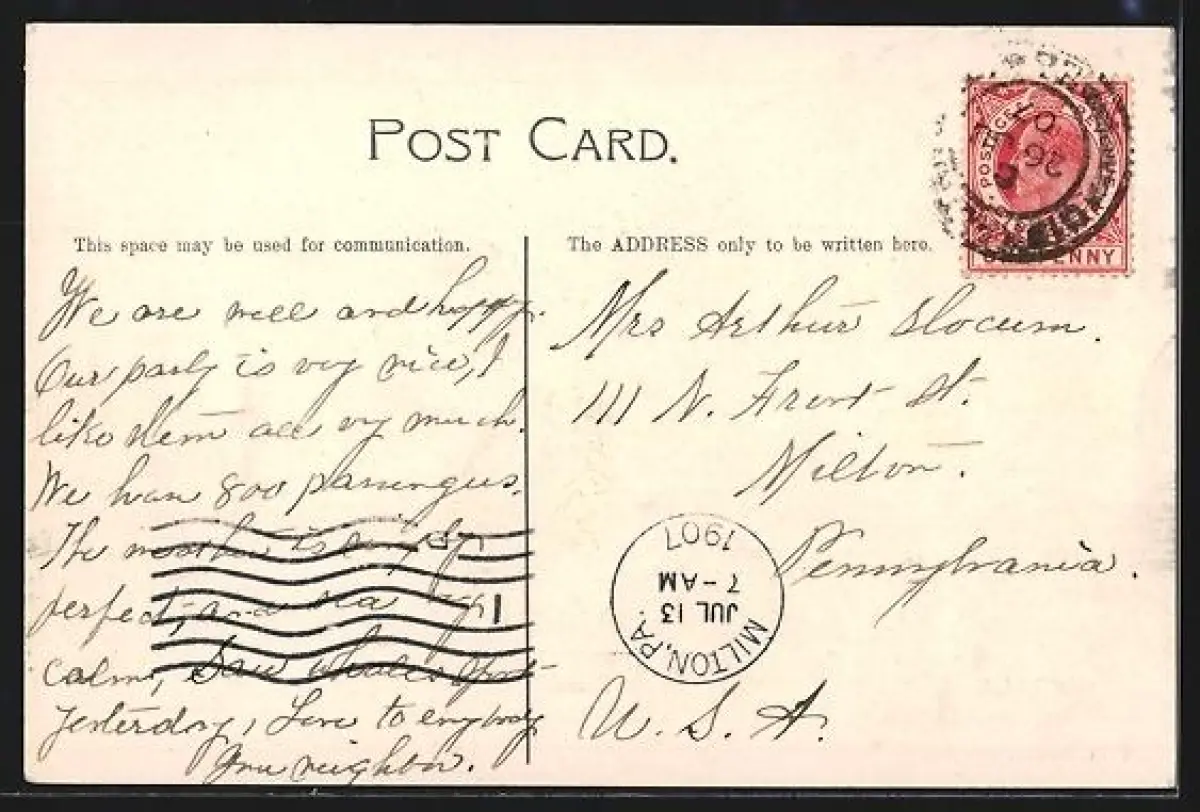 POST CARD.
This space may be used for communication.
The ADDRESS only to be written here.
We are well and happy.
Our party is very nice, I
like them all very much.
We have 800 passengers.
The weather is simply
perfect, and sea very
calm, Saw whales spout
yesterday, Love to everybody
Your neighbor.
Mrs Arthur Slocum.
111 N. Front St.
Milton.
Pennsylvania.
U. S. A.
POSTAGE & REVENUE
PENNY
26
07
MILTON, PA.
JUL 13
7-AM
1907